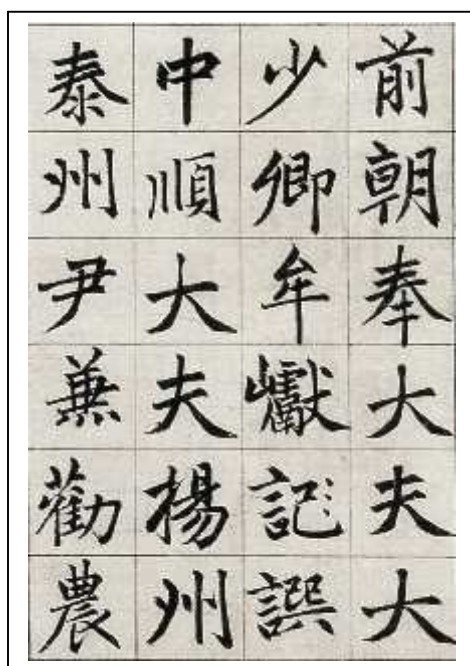 前朝奉大夫大
少卿牟巘記譔
中順大夫楊州
泰州尹兼勸農